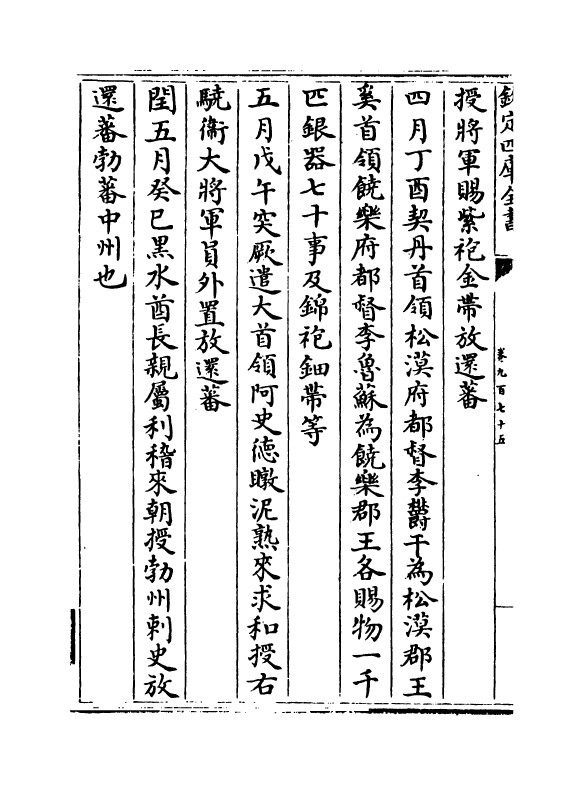 欽定四庫全書
卷九百七十五
授將軍賜紫袍金帶放還蕃
四月丁酉契丹首領松漠府都督李鬱干為松漠郡王
奚首領饒樂府都督李魯蘇為饒樂郡王各賜物一千
匹銀器七十事及錦袍鈿帶等
五月戊午突厥遣大首領阿史徳暾泥熟來求和授右
驍衞大將軍員外置放還蕃
閏五月癸巳黑水酋長親屬利稽來朝授勃州刺史放
還蕃勃蕃中州也